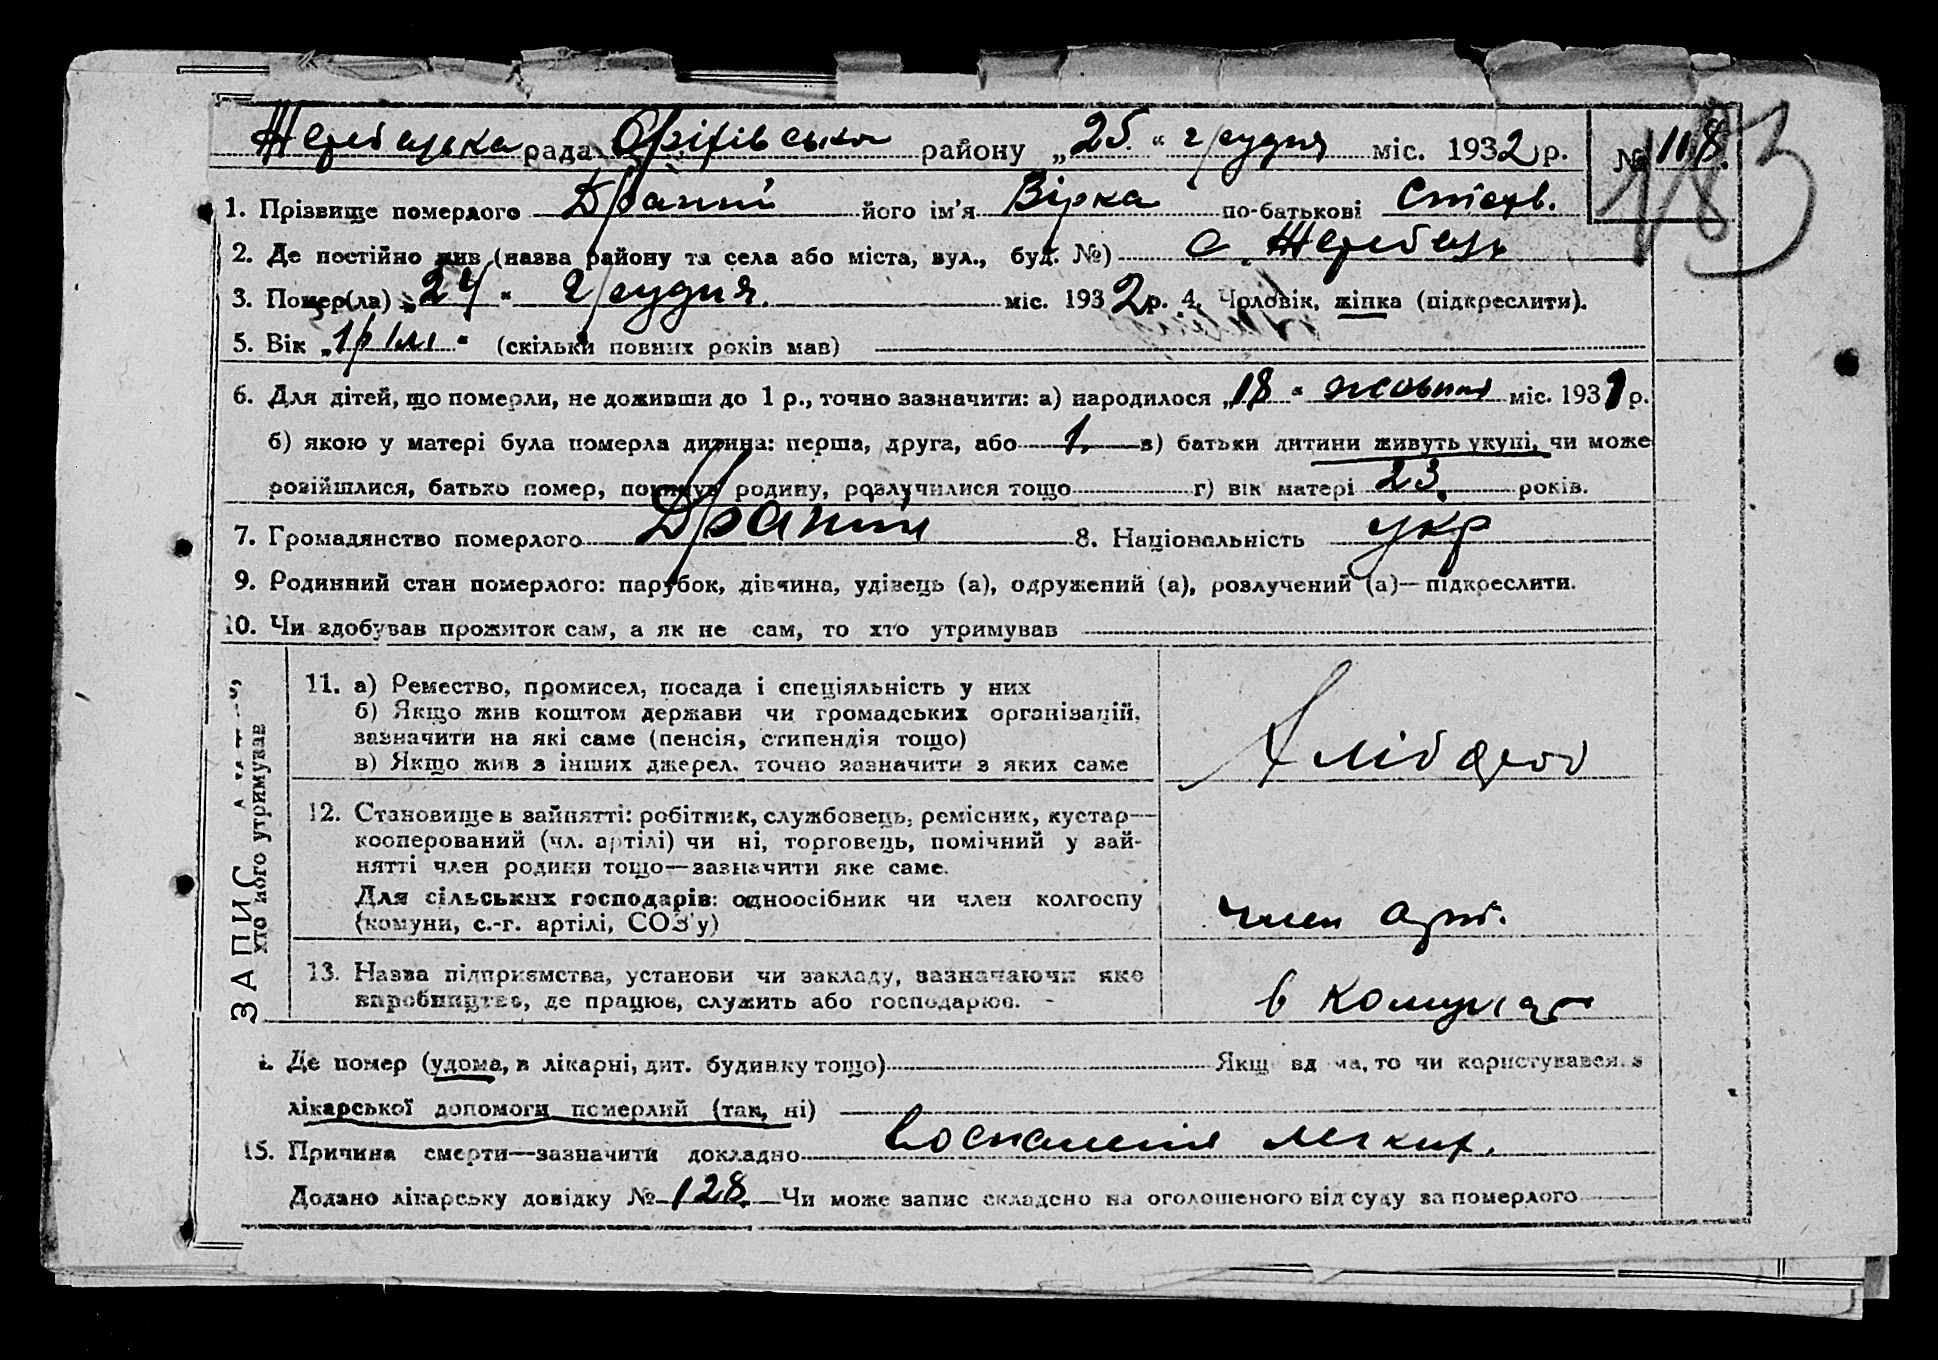 Жеребецька рада Оріхівського району „25.“ грудня міс. 1932 р. № 118.
183
1. Прізвище померлого Драний його ім'я Вірка по-батькові Степв.
2. Де постійно жив (назва району та села або міста, вул., буд. №) с. Жеребець
3. Помер(ла) „24“ грудня міс. 1932 р. 4. Чоловік, жінка (підкреслити).
5. Вік „1 р “ (скільки повних років мав)
6. Для дітей, що померли, не доживши до 1 р., точно зазначити: а) народилося „18“ жовтня міс. 1931 р.
б) якою у матері була померла дитина: перша, друга, або 1. в) батьки дитини живуть укупі, чи може
розійшлися, батько помер, покинув родину, розлучилися тощо г) вік матері 23. років.
7. Громадянство померлого Драний 8. Національність укр
9. Родинний стан померлого: парубок, дівчина, удівець (а), одружений (а), розлучений (а)—підкреслити.
10. Чи здобував прожиток сам, а як не сам, то хто утримував
ЗАПИС
хто його утримував
11. а) Ремество, промисел, посада і спеціяльність у них
б) Якщо жив коштом держави чи громадських організацій,
зазначити на які саме (пенсія, стипендія тощо)
в) Якщо жив з інших джерел, точно зазначити з яких саме
Хлібороб
12. Становище в зайнятті: робітник, службовець, ремісник, кустар—
кооперований (чл. артілі) чи ні, торговець, помічний у зай-
нятті член родини тощо—зазначити яке саме.
Для сільських господарів: одноосібник чи член колгоспу
(комуни, с.-г. артілі, СОЗ'у)
член арт.
13. Назва підприємства, установи чи закладу, зазначаючи яке
виробництво, де працює, служить або господарює.
в комуні
Де помер (удома, в лікарні, дит. будинку тощо) Якщо вдома, то чи користувався з
лікарської допомоги померлий (так, ні)
15. Причина смерти—зазначити докладно воспаления легких.
Додано лікарську довідку № 128. Чи може запис складено на оголошеного від суду за померлого